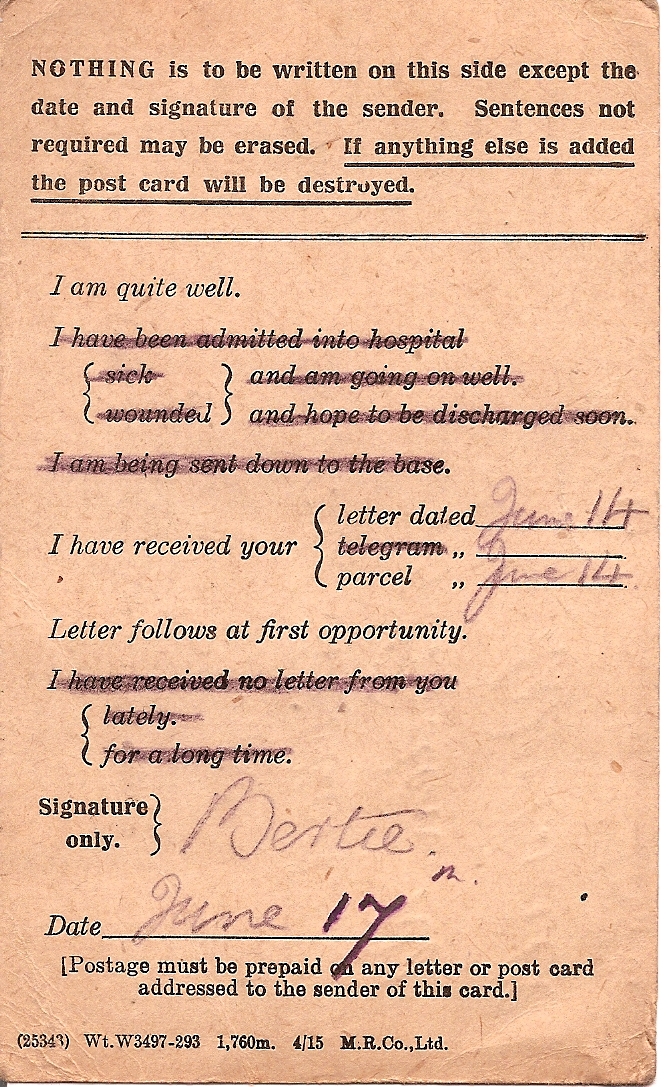 NOTHING is to be written on this side except the
date and signature of the sender. Sentences not
required may be erased. If anything else is added
the post card will be destroyed.
I am quite well.
I have been admitted into hospital
sick and am going on well.
wounded and hope to be discharged soon.
I am being sent down to the base.
letter dated June 14
I have received your
telegram „
parcel „ June 14.
Letter follows at first opportunity.
I have received no letter from you
lately.
for a long time.
Signature
only.
Bertie.
Date June 17
[Postage must be prepaid on any letter or post card
addressed to the sender of this card.]
(25343) Wt.W3497-293 1,760m. 4/15 M.R.Co.,Ltd.